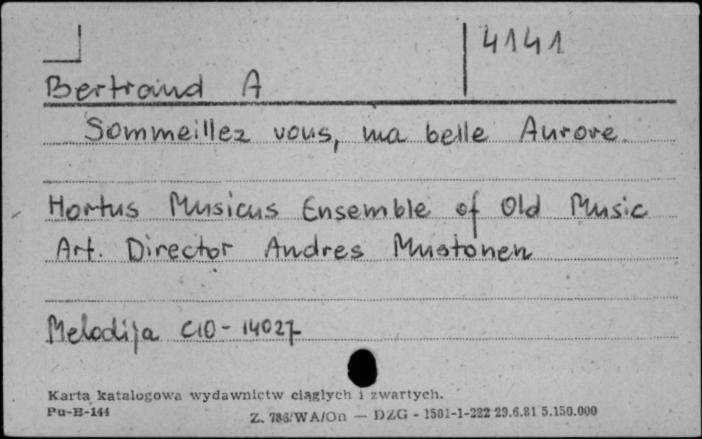 4141
Bertrand A
Sommeillez vous, ma belle Aurore.
Hortus Musicus Ensemble of Old Music
Art. Director Andres Mustonen
Melodija C10-14027
Karta katalogowa wydawnictw ciągłych i zwartych.
Pu-B-144 Z. 786/WA/On — DZG - 1501-1-222 29.6.81 5.150.000